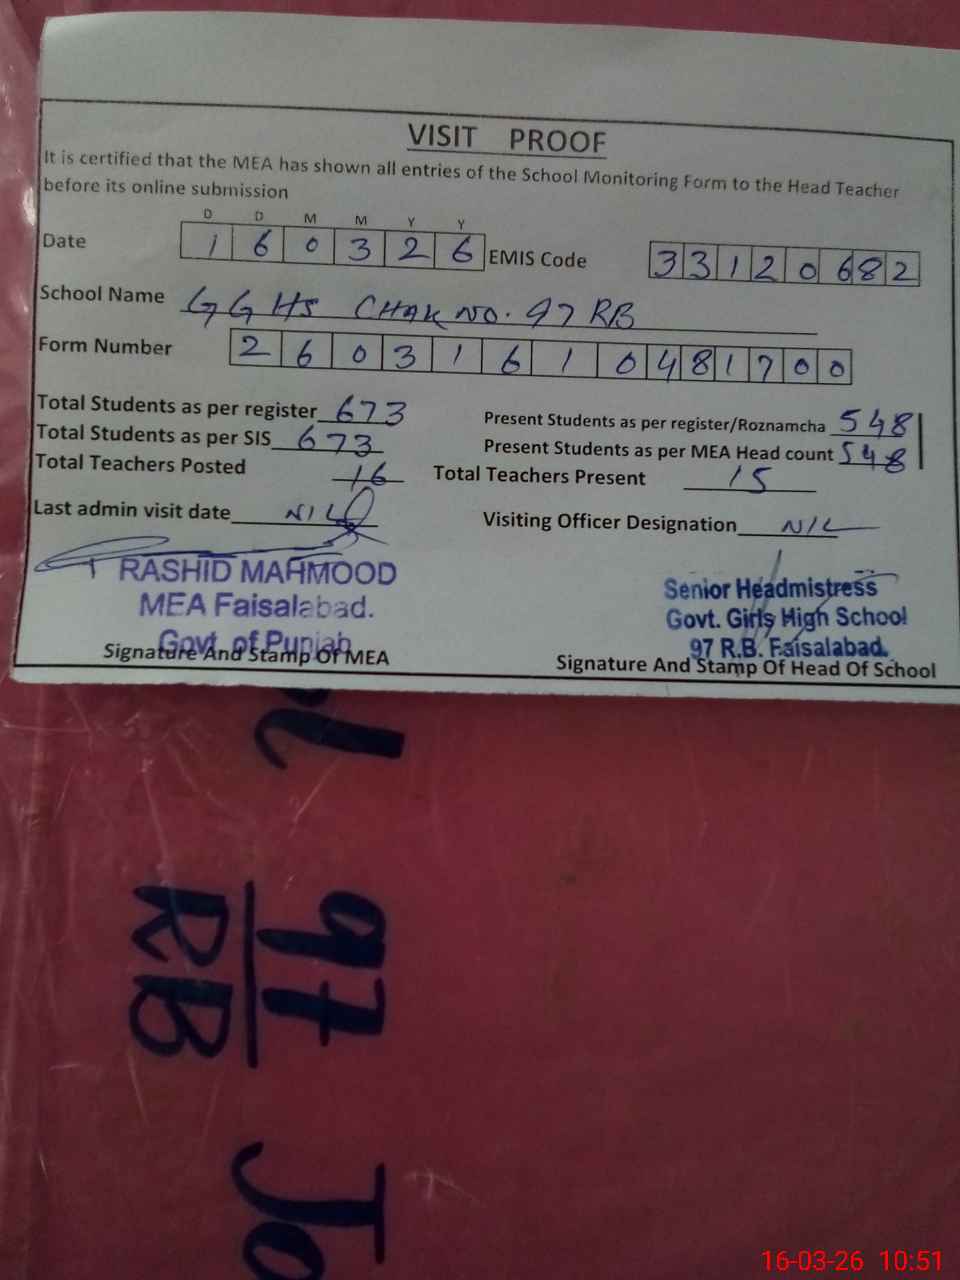 VISIT PROOF
It is certified that the MEA has shown all entries of the School Monitoring Form to the Head Teacher
before its online submission
D D M M Y Y
Date 1 6 0 3 2 6 EMIS Code 3 3 1 2 0 6 8 2
School Name GGHS CHAK NO. 97 RB
Form Number 2 6 0 3 1 6 1 0 4 8 1 7 0 0
Total Students as per register 673 Present Students as per register/Roznamcha 548
Total Students as per SIS 673 Present Students as per MEA Head count 548
Total Teachers Posted 16 Total Teachers Present 15
Last admin visit date NIL Visiting Officer Designation NIL
RASHID MAHMOOD
MEA Faisalabad.
Govt. of Punjab
Signature And Stamp Of MEA
Senior Headmistress
Govt. Girls High School
97 R.B. Faisalabad.
Signature And Stamp Of Head Of School
97
RB
Jo
16-03-26 10:51